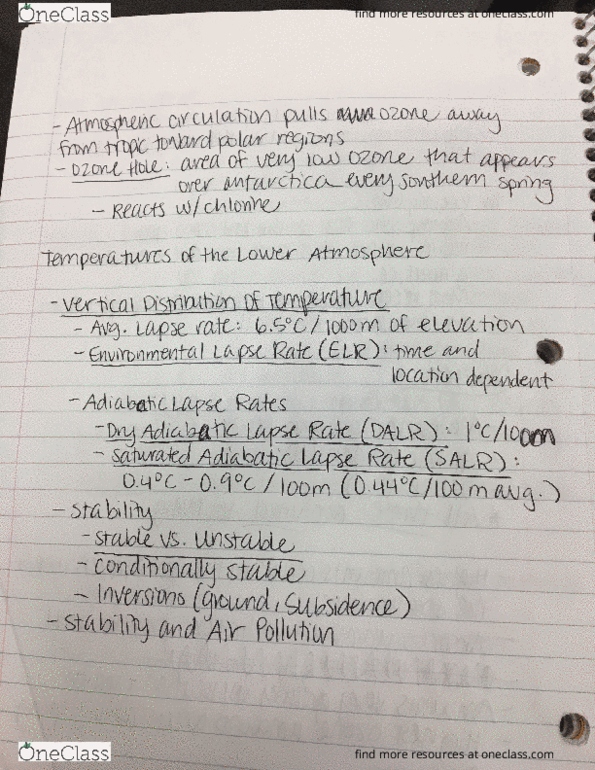 OneClass
find more resources at oneclass.com
- Atmospheric circulation pulls ozone away
from tropic toward polar regions
- Ozone Hole: area of very low ozone that appears
over antarctica every southern spring
- Reacts w/chlorine
Temperatures of the Lower Atmosphere
- Vertical Distribution of Temperature
- Avg. Lapse rate: 6.5°C/1000m of elevation
- Environmental Lapse Rate (ELR): time and
location dependent
- Adiabatic Lapse Rates
- Dry Adiabatic Lapse Rate (DALR): 1°C/100m
- Saturated Adiabatic Lapse Rate (SALR):
0.4°C - 0.9°C/100m (0.44°C/100m avg.)
- Stability
- Stable vs. Unstable
- Conditionally stable
- Inversions (ground, subsidence)
- Stability and Air Pollution
OneClass
find more resources at oneclass.com